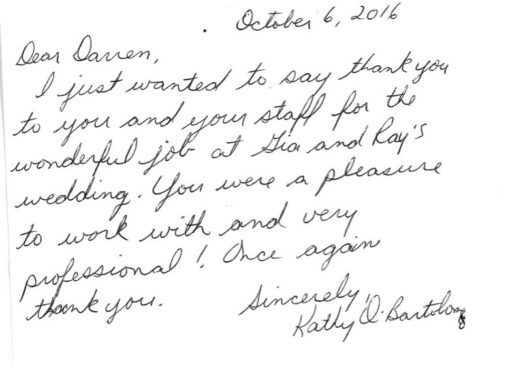 October 6, 2016
Dear Darren,
I just wanted to say thank you
to you and your staff for the
wonderful job at Gia and Ray's
wedding. You were a pleasure
to work with and very
professional! Once again
thank you.
Sincerely,
Kathy D. Bartolom